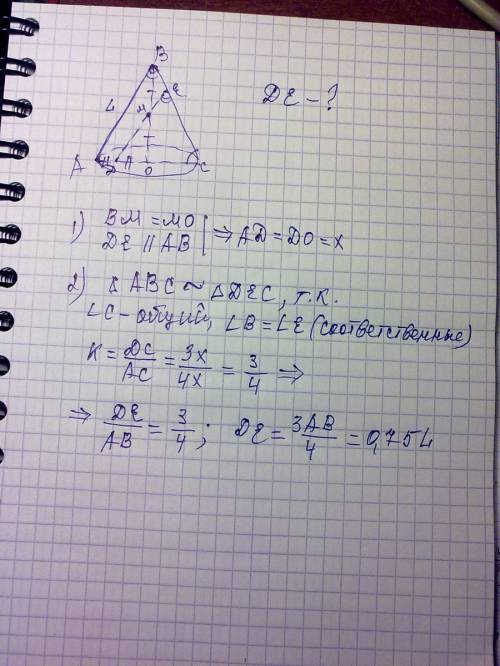 B
L
E
M
DE - ?
A
D
O
C
1) BM = MO
DE || AB | ⇒ AD = DO = x
2) Δ ABC ~ ΔDEC, т.к.
∠C - общий, ∠B = ∠E (соответственные)
K = DC/AC = 3x/4x = 3/4 ⇒
⇒ DE/AB = 3/4; DE = 3AB/4 = 0,75L